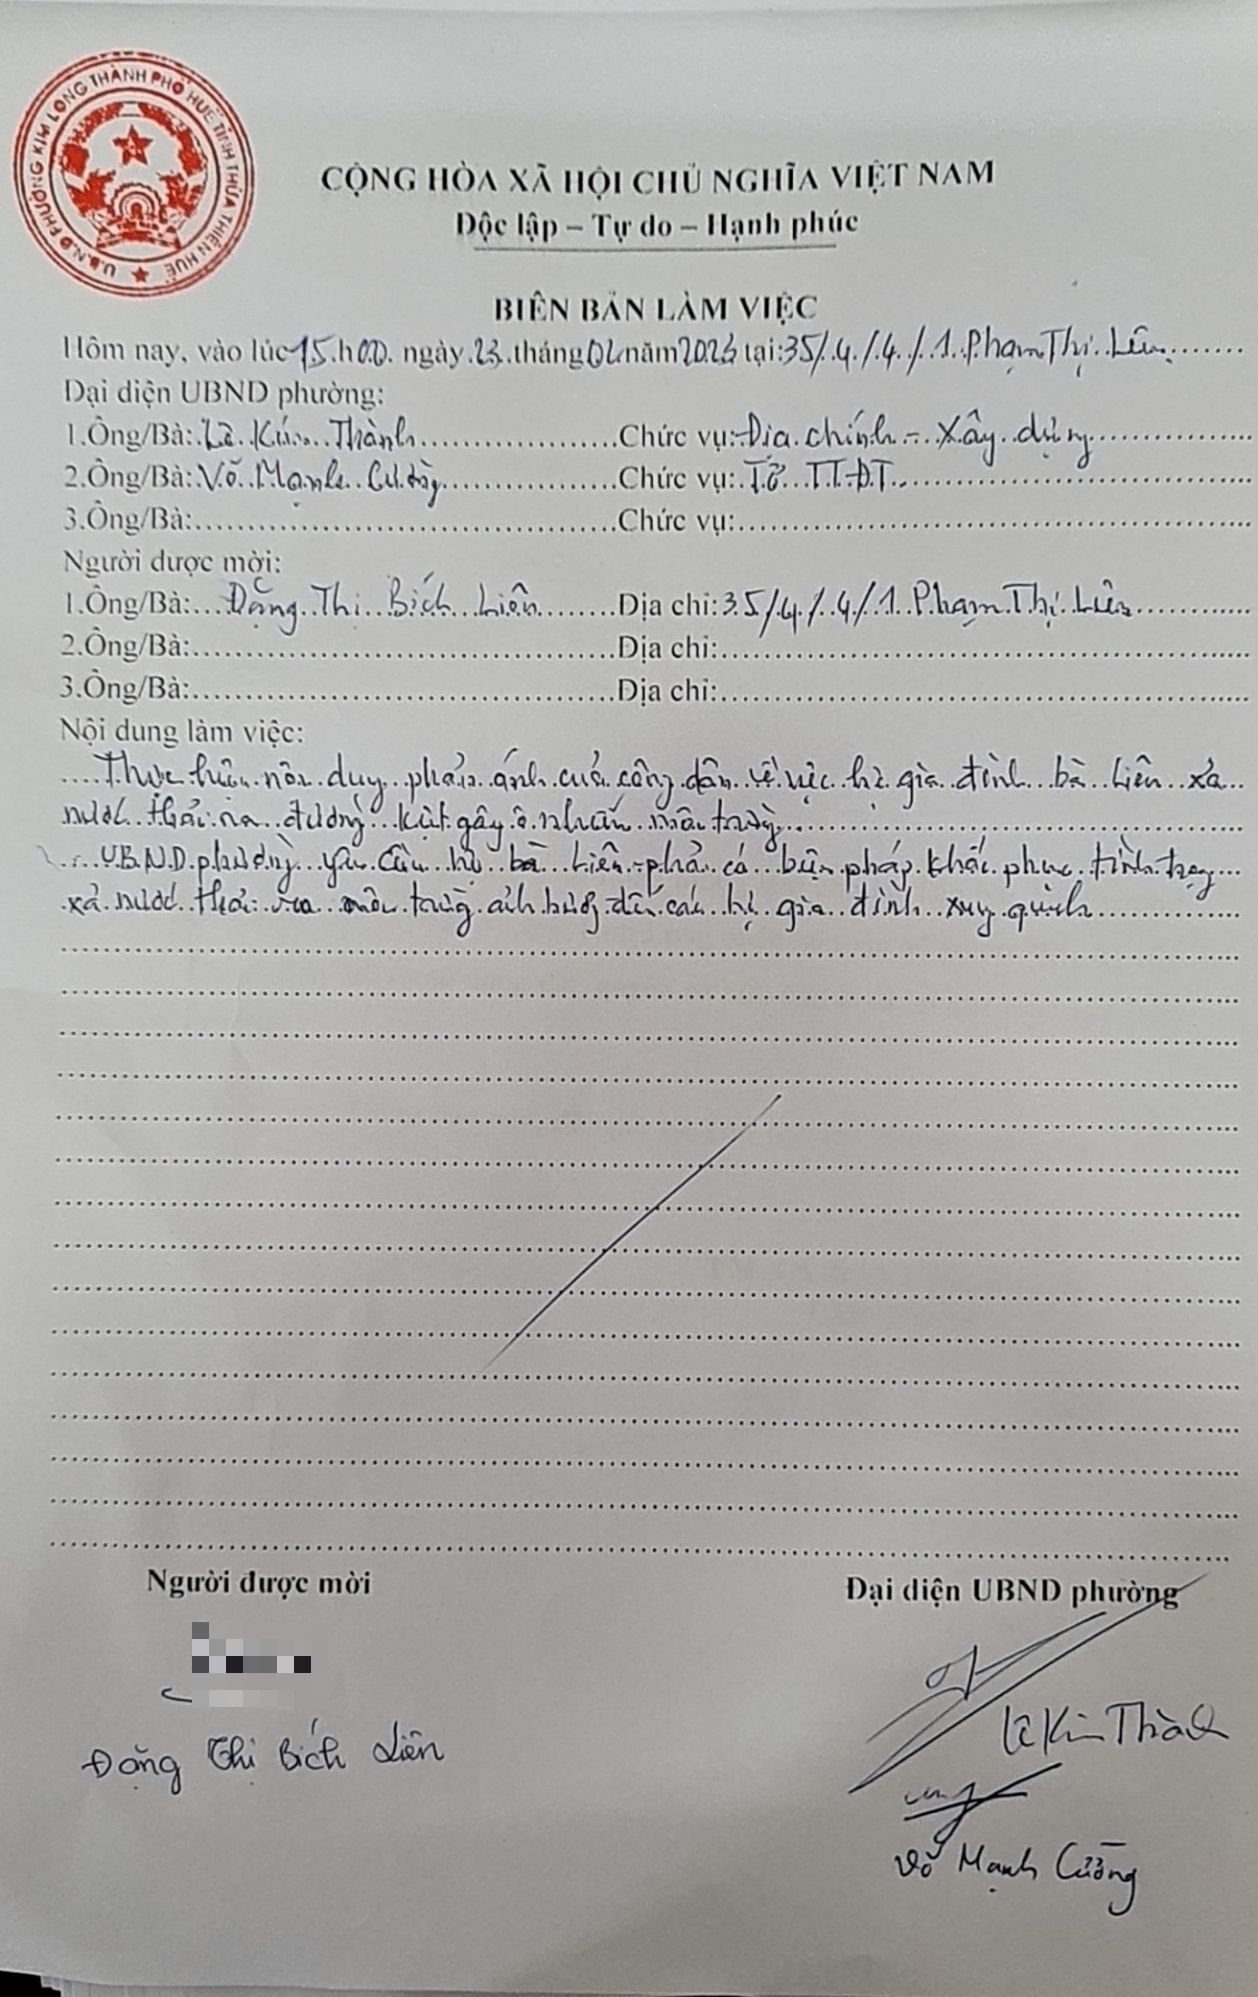 U.B.N.D PHƯỜNG KIM LONG THÀNH PHỐ HUẾ TỈNH THỪA THIÊN HUẾ
CỘNG HÒA XÃ HỘI CHỦ NGHĨA VIỆT NAM
Độc lập – Tự do – Hạnh phúc
BIÊN BẢN LÀM VIỆC
Hôm nay, vào lúc 15 h 00 ngày 23 tháng 02 năm 2023 tại: 35/4/4/1 Phạm Thị Liên
Đại diện UBND phường:
1.Ông/Bà: Lê Kim Thành Chức vụ: Địa chính - Xây dựng
2.Ông/Bà: Võ Mạnh Cường Chức vụ: Tổ TTĐT
3.Ông/Bà: Chức vụ:
Người được mời:
1.Ông/Bà: Đặng Thị Bích Liên Địa chỉ: 35/4/4/1 Phạm Thị Liên
2.Ông/Bà: Địa chỉ:
3.Ông/Bà: Địa chỉ:
Nội dung làm việc:
Thực hiện nội dung phản ánh của công dân về việc hộ gia đình bà Liên xả
nước thải ra đường kiệt gây ô nhiễm môi trường
UBND phường yêu cầu hộ bà Liên phải có biện pháp khắc phục tình trạng
xả nước thải ra môi trường ảnh hưởng đến các hộ gia đình xung quanh
Người được mời
Đại diện UBND phường
Lê Kim Thành
Đặng Thị Bích Liên
Võ Mạnh Cường